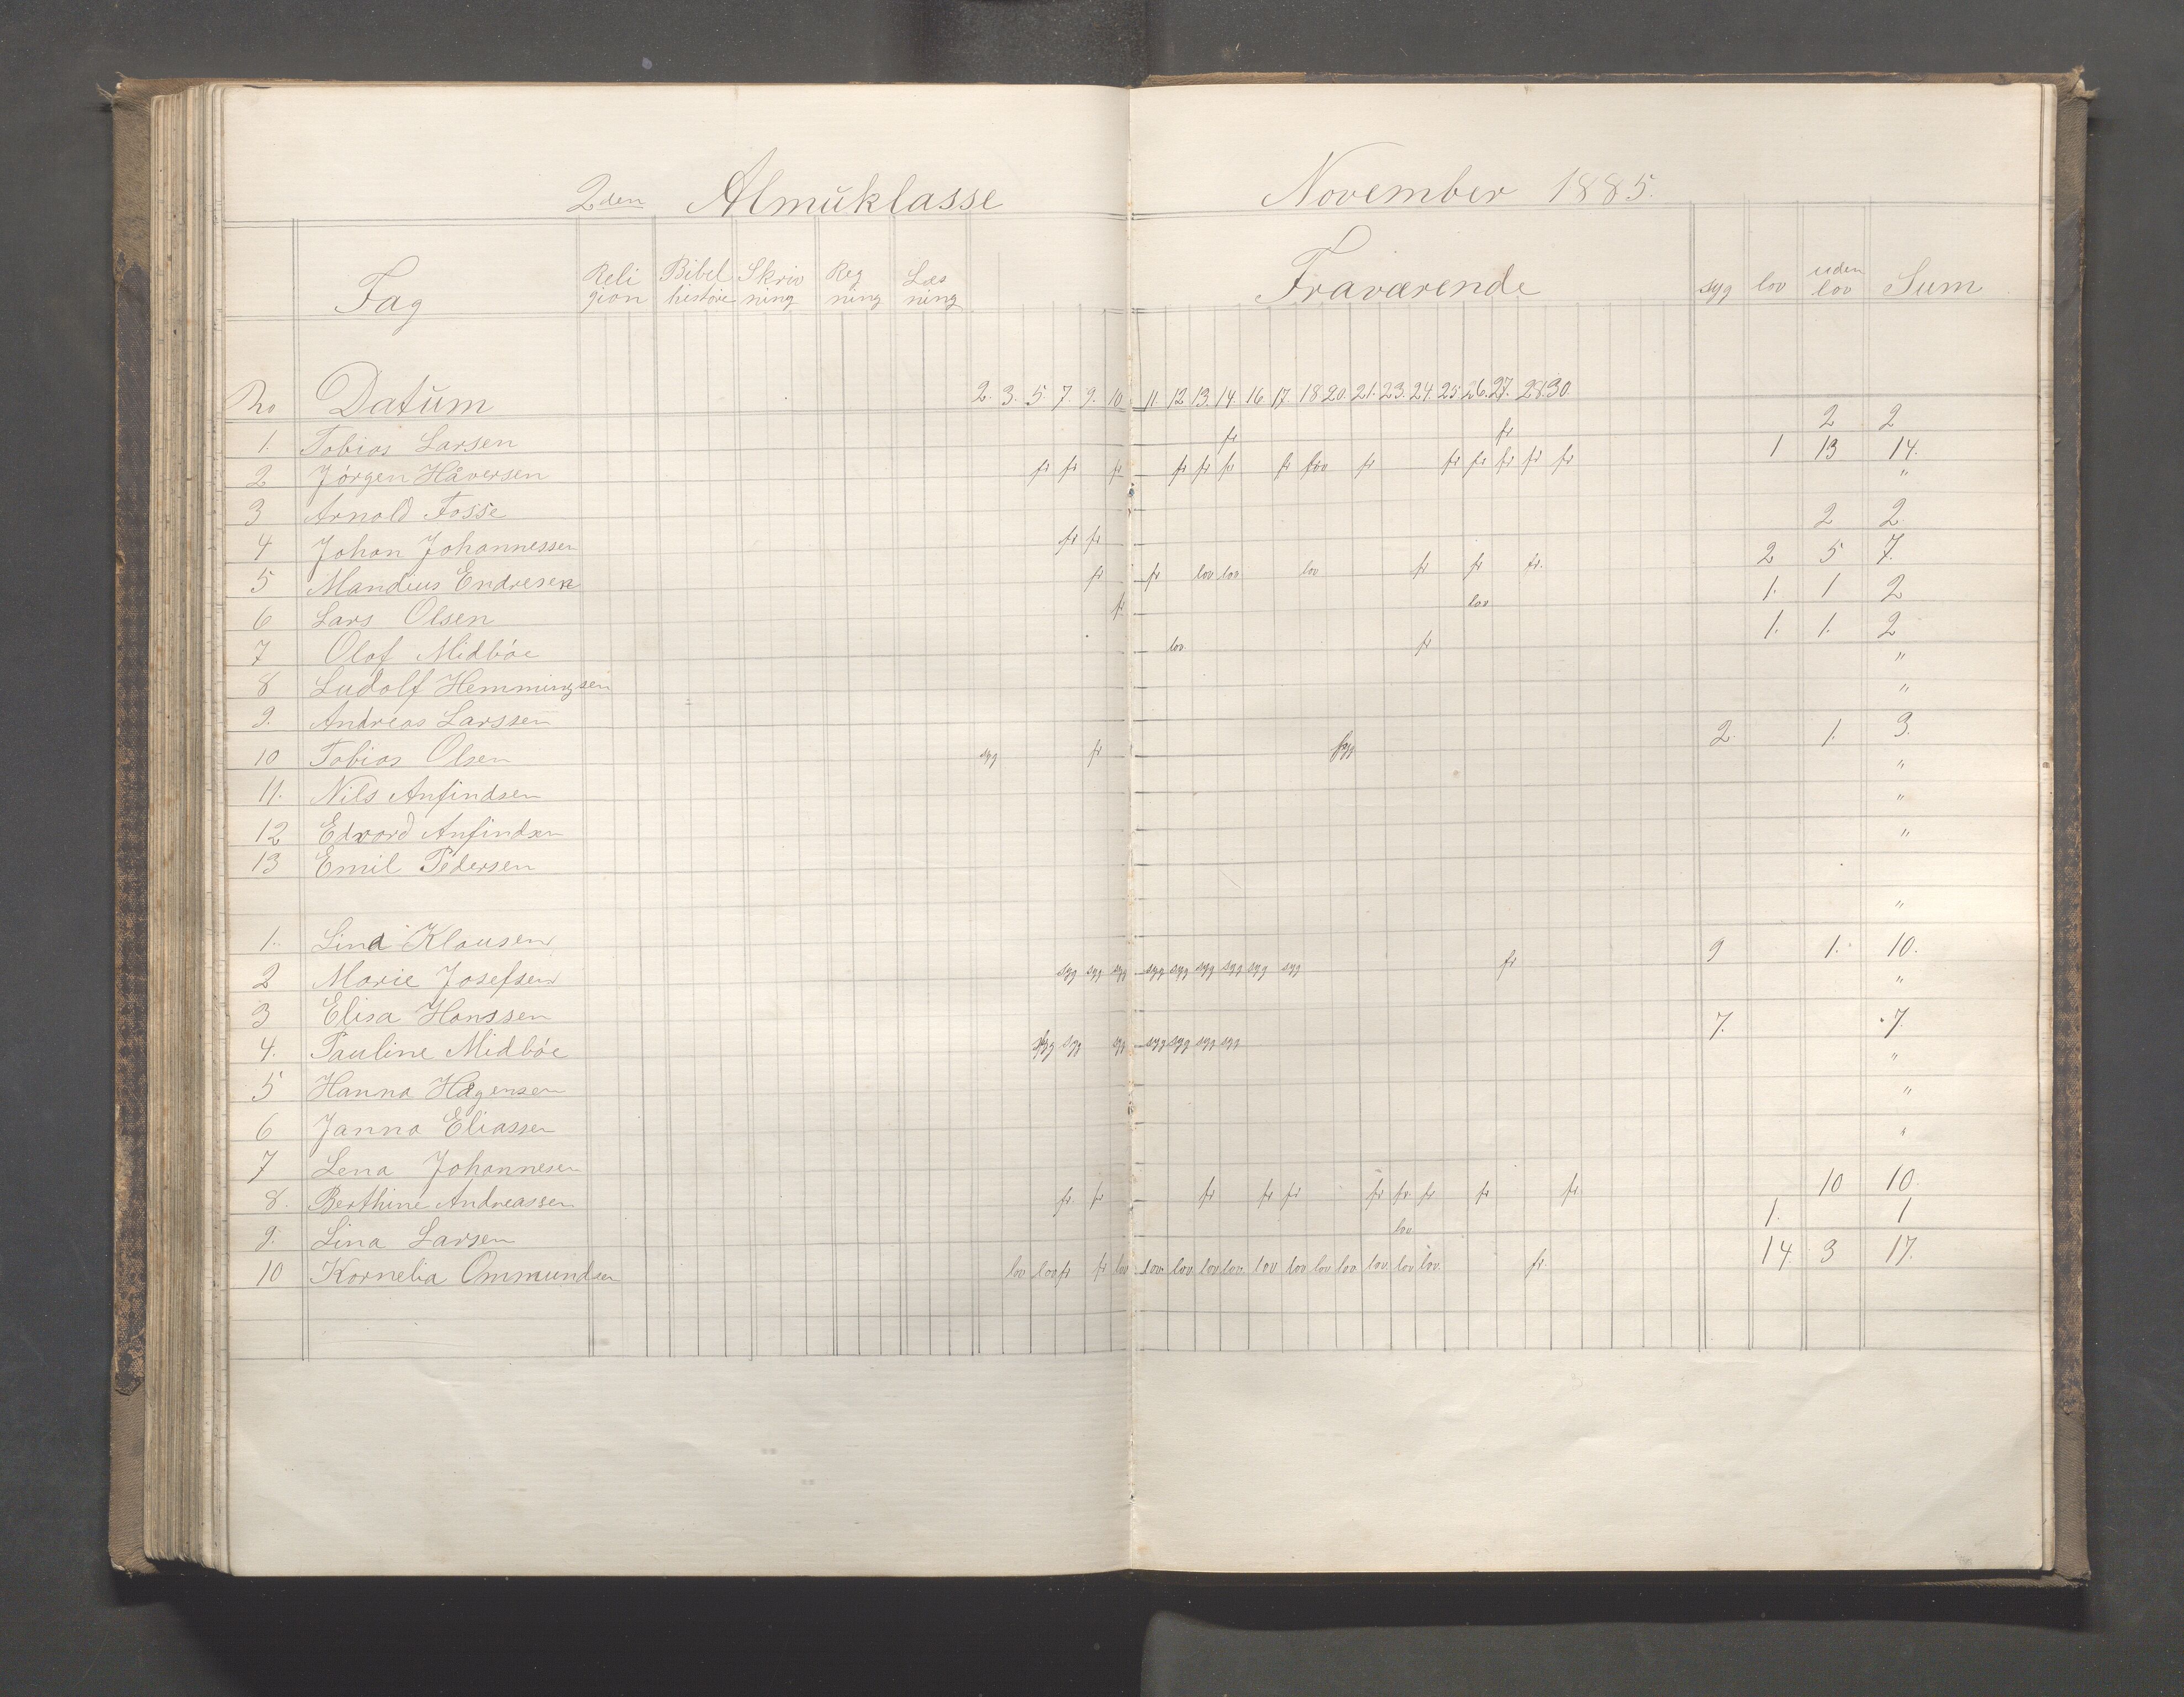 2den Almuklasse November 1885.
Fag Religion Bibelhistorie Skrivning Regning Læsning Fraværende syg lov uden lov Sum
No Datum 2. 3. 5. 7. 9. 10 11 12 13. 14. 16. 17. 18 20. 21. 23. 24. 25 26. 27. 28. 30.
1. Tobias Larsen fr fr 2 2
2 Jørgen Håversen fr fr fr fr fr fr fr lov fr fr fr fr fr fr 1 13 14.
3 Arnold Fosse "
4 Johan Johannessen fr fr 2 2
5 Mandius Endresen fr fr lov lov lov fr fr fr. 2 5 7.
6 Lars Olsen fr lov 1. 1 2
7 Olaf Midbøe lov fr 1. 1. 2
8 Ludolf Hemmingsen "
9. Andreas Larssen "
10 Tobias Olsen syg fr syg 2. 1. 3.
11. Nils Anfindsen "
12 Edvard Anfindsen "
13 Emil Pedersen "
1. Lina Klausen "
2 Marie Josefsen syg syg syg syg syg syg syg syg syg fr 9 1. 10.
3 Elisa Hanssen "
4. Pauline Midbøe syg syg syg syg syg syg syg 7. 7.
5 Hanna Hagensen "
6 Janna Eliassen "
7 Lena Johannesen "
8. Berthine Andreassen fr. fr fr fr fr fr fr. fr fr fr 10 10.
9. Lina Larsen lov 1. 1
10 Kornelia Ommundsen lov lov fr fr lov lov lov lov lov lov lov lov lov lov lov lov. fr. 14. 3 17.